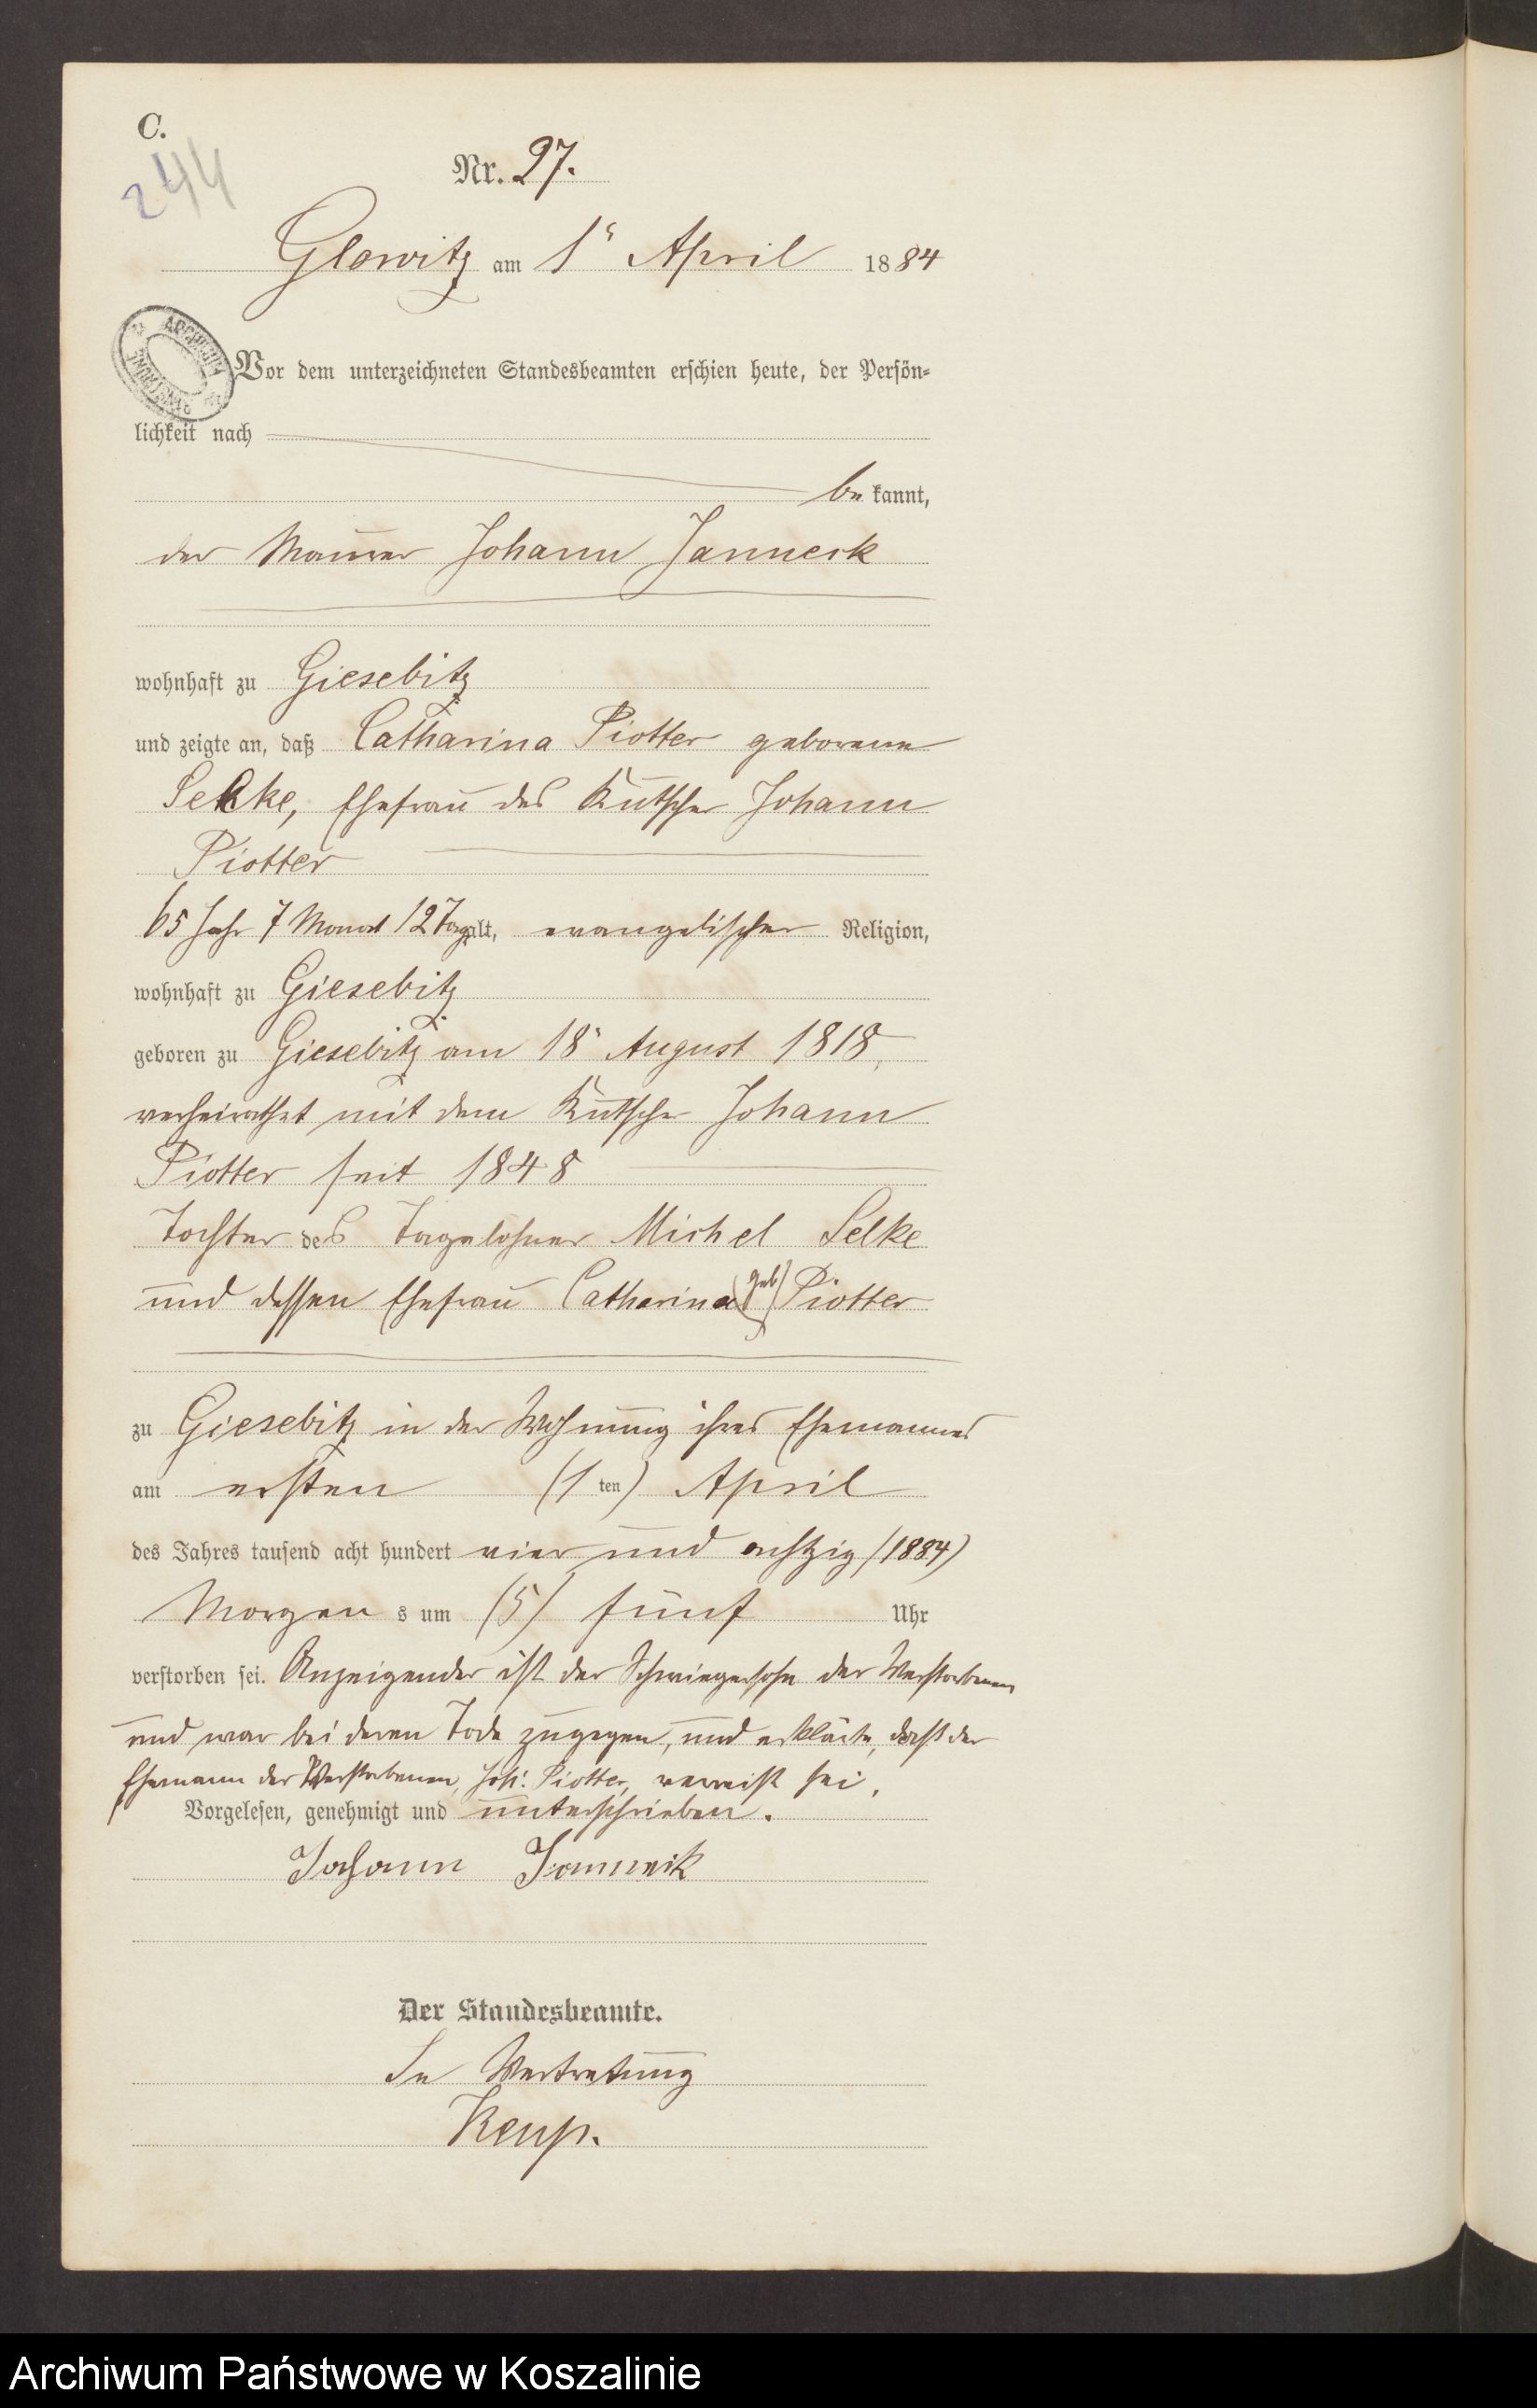 C.
244
Nr. 27.
Glowitz am 1ᵗ April 1884
Vor dem unterzeichneten Standesbeamten erschien heute, der Persön-
lichkeit nach
be kannt,
der Maurer Johann Janneck
wohnhaft zu Giesebitz
und zeigte an, daß Catharina Piotter geborene
Selke, Ehefrau des Kutscher Johann
Piotter
65 Jahr 7 Monat 12 Tage alt, evangelischer Religion,
wohnhaft zu Giesebitz
geboren zu Giesebitz am 18ᵗ August 1818,
verheirathet mit dem Kutscher Johann
Piotter seit 1848
Tochter des Tagelohner Michel Selke
und dessen Ehefrau Catharina geb. Piotter
zu Giesebitz in der Wohnung ihres Ehemannes
am ersten (1 ten) April
des Jahres tausend acht hundert vier und achtzig (1884)
Morgen s um (5) fünf Uhr
verstorben sei. Anzeigender ist der Schwiegersohn der Verstorbenen
und war bei deren Tode zugegen, und erklärte, dasst der
Ehemann der Verstorbenen, Joh: Piotter, verreist sei.
Vorgelesen, genehmigt und unterschrieben.
Johann Janneck
Der Standesbeamte.
In Vertretung
Archiwum Państwowe w Koszalinie